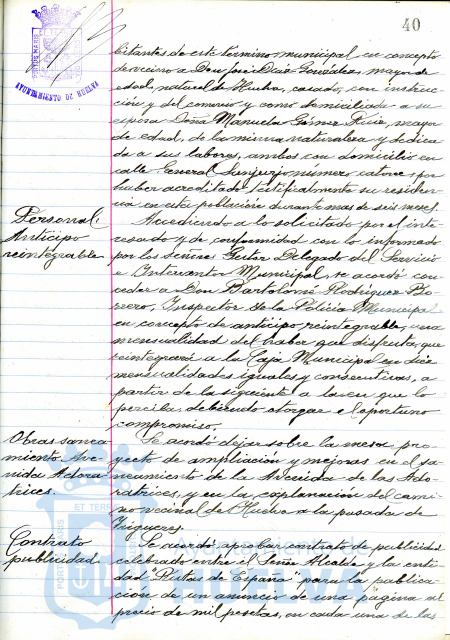 40
bitantes de este término municipal en concepto
de vecino a Don José Díaz González, mayor de
edad, natural de Huelva, casado, con instruc-
ción y del comercio y como domiciliada a su
esposa Doña Manuela Gómez Ruiz, mayor
de edad, de la misma naturaleza y dedica-
da a sus labores, ambos con domicilio en
calle General Sanjurjo numero catorce, por
haber acreditado testifical mente su residen-
cia en esta población durante mas de seis meses.
Personal:
Anticipo
reintegrable
Accediendo a lo solicitado por el inte-
resado y de conformidad con lo informado
por los Señores Gestor Delegado del Servicio
e Interventor Municipal, se acordó con-
ceder a Don Bartolomé Rodríguez Bo-
rrero, Inspector de la Policía Municipal
en concepto de anticipo reintegrable, una
mensualidad del haber que disfruta, que
reintegrará a la Caja Municipal en diez
mensualidades iguales y consecutivas, a
partir de la siguiente a la en que lo
perciba, debiendo otorgar el oportuno
compromiso.
Obras sanea-
miento Ave-
nida Adora-
trices.
Se acordó dejar sobre la mesa pro-
yecto de ampliación y mejoras en el sa-
neamiento de la Avenida de las Ado-
ratrices, y en la explanación del cami-
no vecinal de Huelva a la pasada de
Trigueros.
Contrato
publicidad
Se acordó aprobar contrato de publicidad
celebrado entre el Señor Alcalde y la enti-
dad "Rutas de España" para la publica-
ción de un anuncio de una página al
precio de mil pesetas, en cada una de las